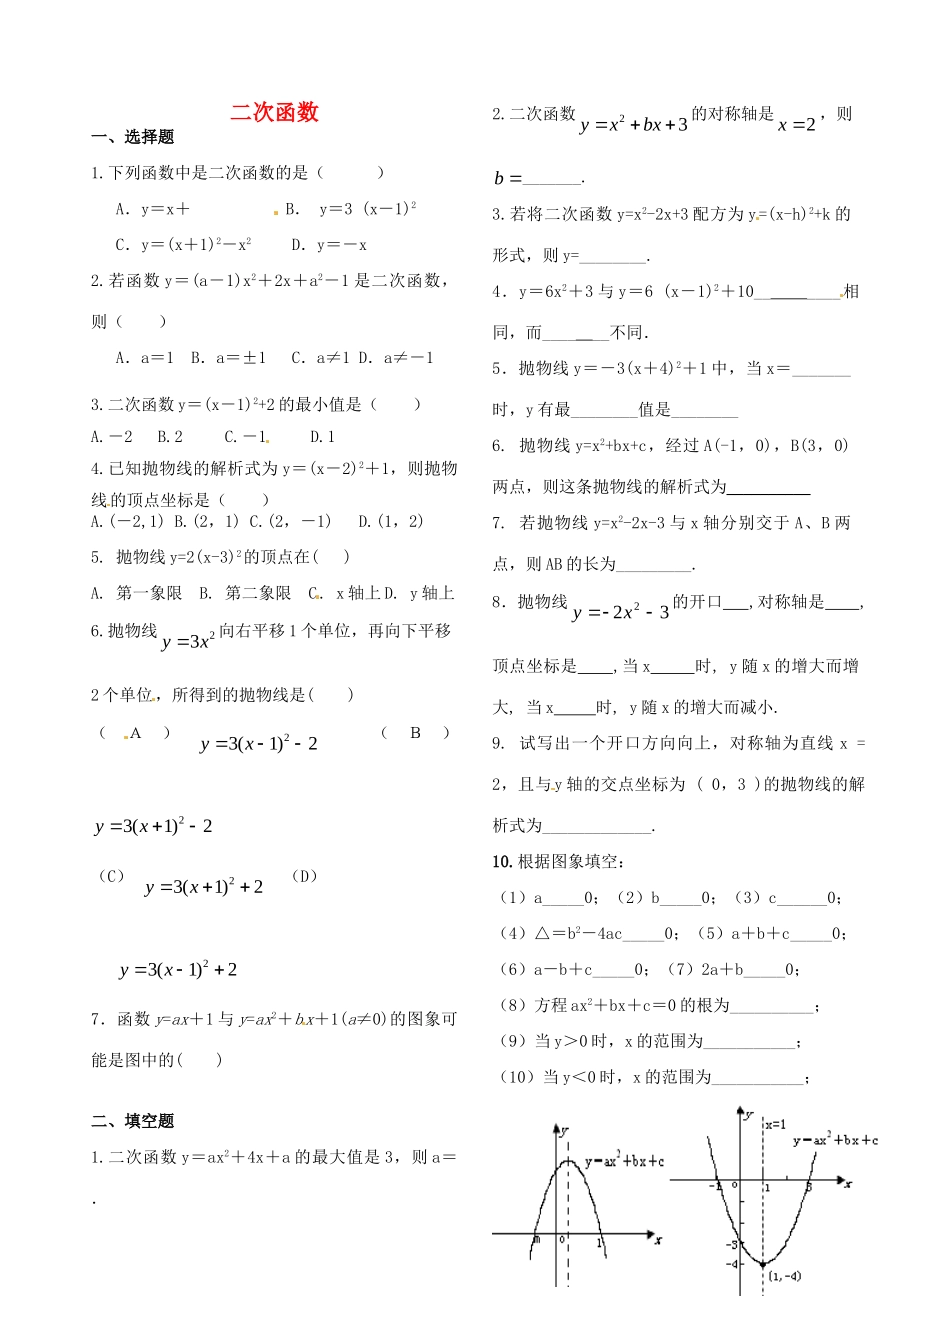 二次函数
一、选择题
1.下列函数中是二次函数的是（　　　）
A．y＝x＋　　　B． y＝3 (x－1)²
C．y＝(x＋1)²－x²　　D．y＝－x
2.若函数 y＝(a－1)x²＋2x＋a²－1 是二次函数，
则（　　）
A．a＝1　B．a＝±1　C．a≠1 D．a≠－1
3.二次函数 y＝(x－1)²+2 的最小值是（　　）
A.－2　B.2　　C.－1　　D.1
4.已知抛物线的解析式为 y＝(x－2)²＋1，则抛物
线的顶点坐标是（　　）
A.(－2,1) B.(2，1) C.(2，－1)　D.(1，2)
5. 抛物线 y=2(x-3)²的顶点在(　　)
A. 第一象限　B. 第二象限　C. x 轴上 D. y 轴上
6.抛物线 y=3x² 向右平移 1 个单位，再向下平移
2 个单位，所得到的抛物线是(　　)
（ A ） y=3(x−1)²−2 （ B ）
y=3(x+1)²−2
（C） y=3(x+1)²+2 （D）
y=3(x−1)²+2
7．函数 y=ax＋1 与 y=ax²＋bx＋1(a≠0)的图象可
能是图中的(　　)
二、填空题
1.二次函数 y＝ax²＋4x＋a 的最大值是 3，则 a＝
．
2.二次函数 y=x²+bx+3 的对称轴是 x=2，则
b=_______.
3.若将二次函数 y=x²-2x+3 配方为 y=(x-h)²+k 的
形式，则 y=________.
4．y＝6x²＋3 与 y＝6 (x－1)²＋10__________相
同，而________不同．
5．抛物线 y＝－3(x＋4)²＋1 中，当 x＝_______
时，y 有最________值是________
6. 抛物线 y=x²+bx+c，经过 A(-1，0)，B(3，0)
两点，则这条抛物线的解析式为__________
7. 若抛物线 y=x²-2x-3 与 x 轴分别交于 A、B 两
点，则 AB 的长为_________.
8．抛物线 y=−2x²−3 的开口___,对称轴是____,
顶点坐标是____,当 x_____时, y 随 x 的增大而增
大, 当 x_____时, y 随 x 的增大而减小.
9. 试写出一个开口方向向上，对称轴为直线 x =
2，且与 y 轴的交点坐标为 ( 0，3 )的抛物线的解
析式为_____________.
10.根据图象填空：
（1）a_____0；（2）b_____0；（3）c______0；
（4）△＝b²－4ac_____0；（5）a＋b＋c_____0；
（6）a－b＋c_____0；（7）2a＋b_____0；
（8）方程 ax²＋bx＋c＝0 的根为__________；
（9）当 y＞0 时，x 的范围为___________；
（10）当 y＜0 时，x 的范围为___________；
y
y=ax²+bx+c
m 0 1 x
y x=1
y=ax²+bx+c
-1 0 1 3 x
-3
-4
(1,-4)